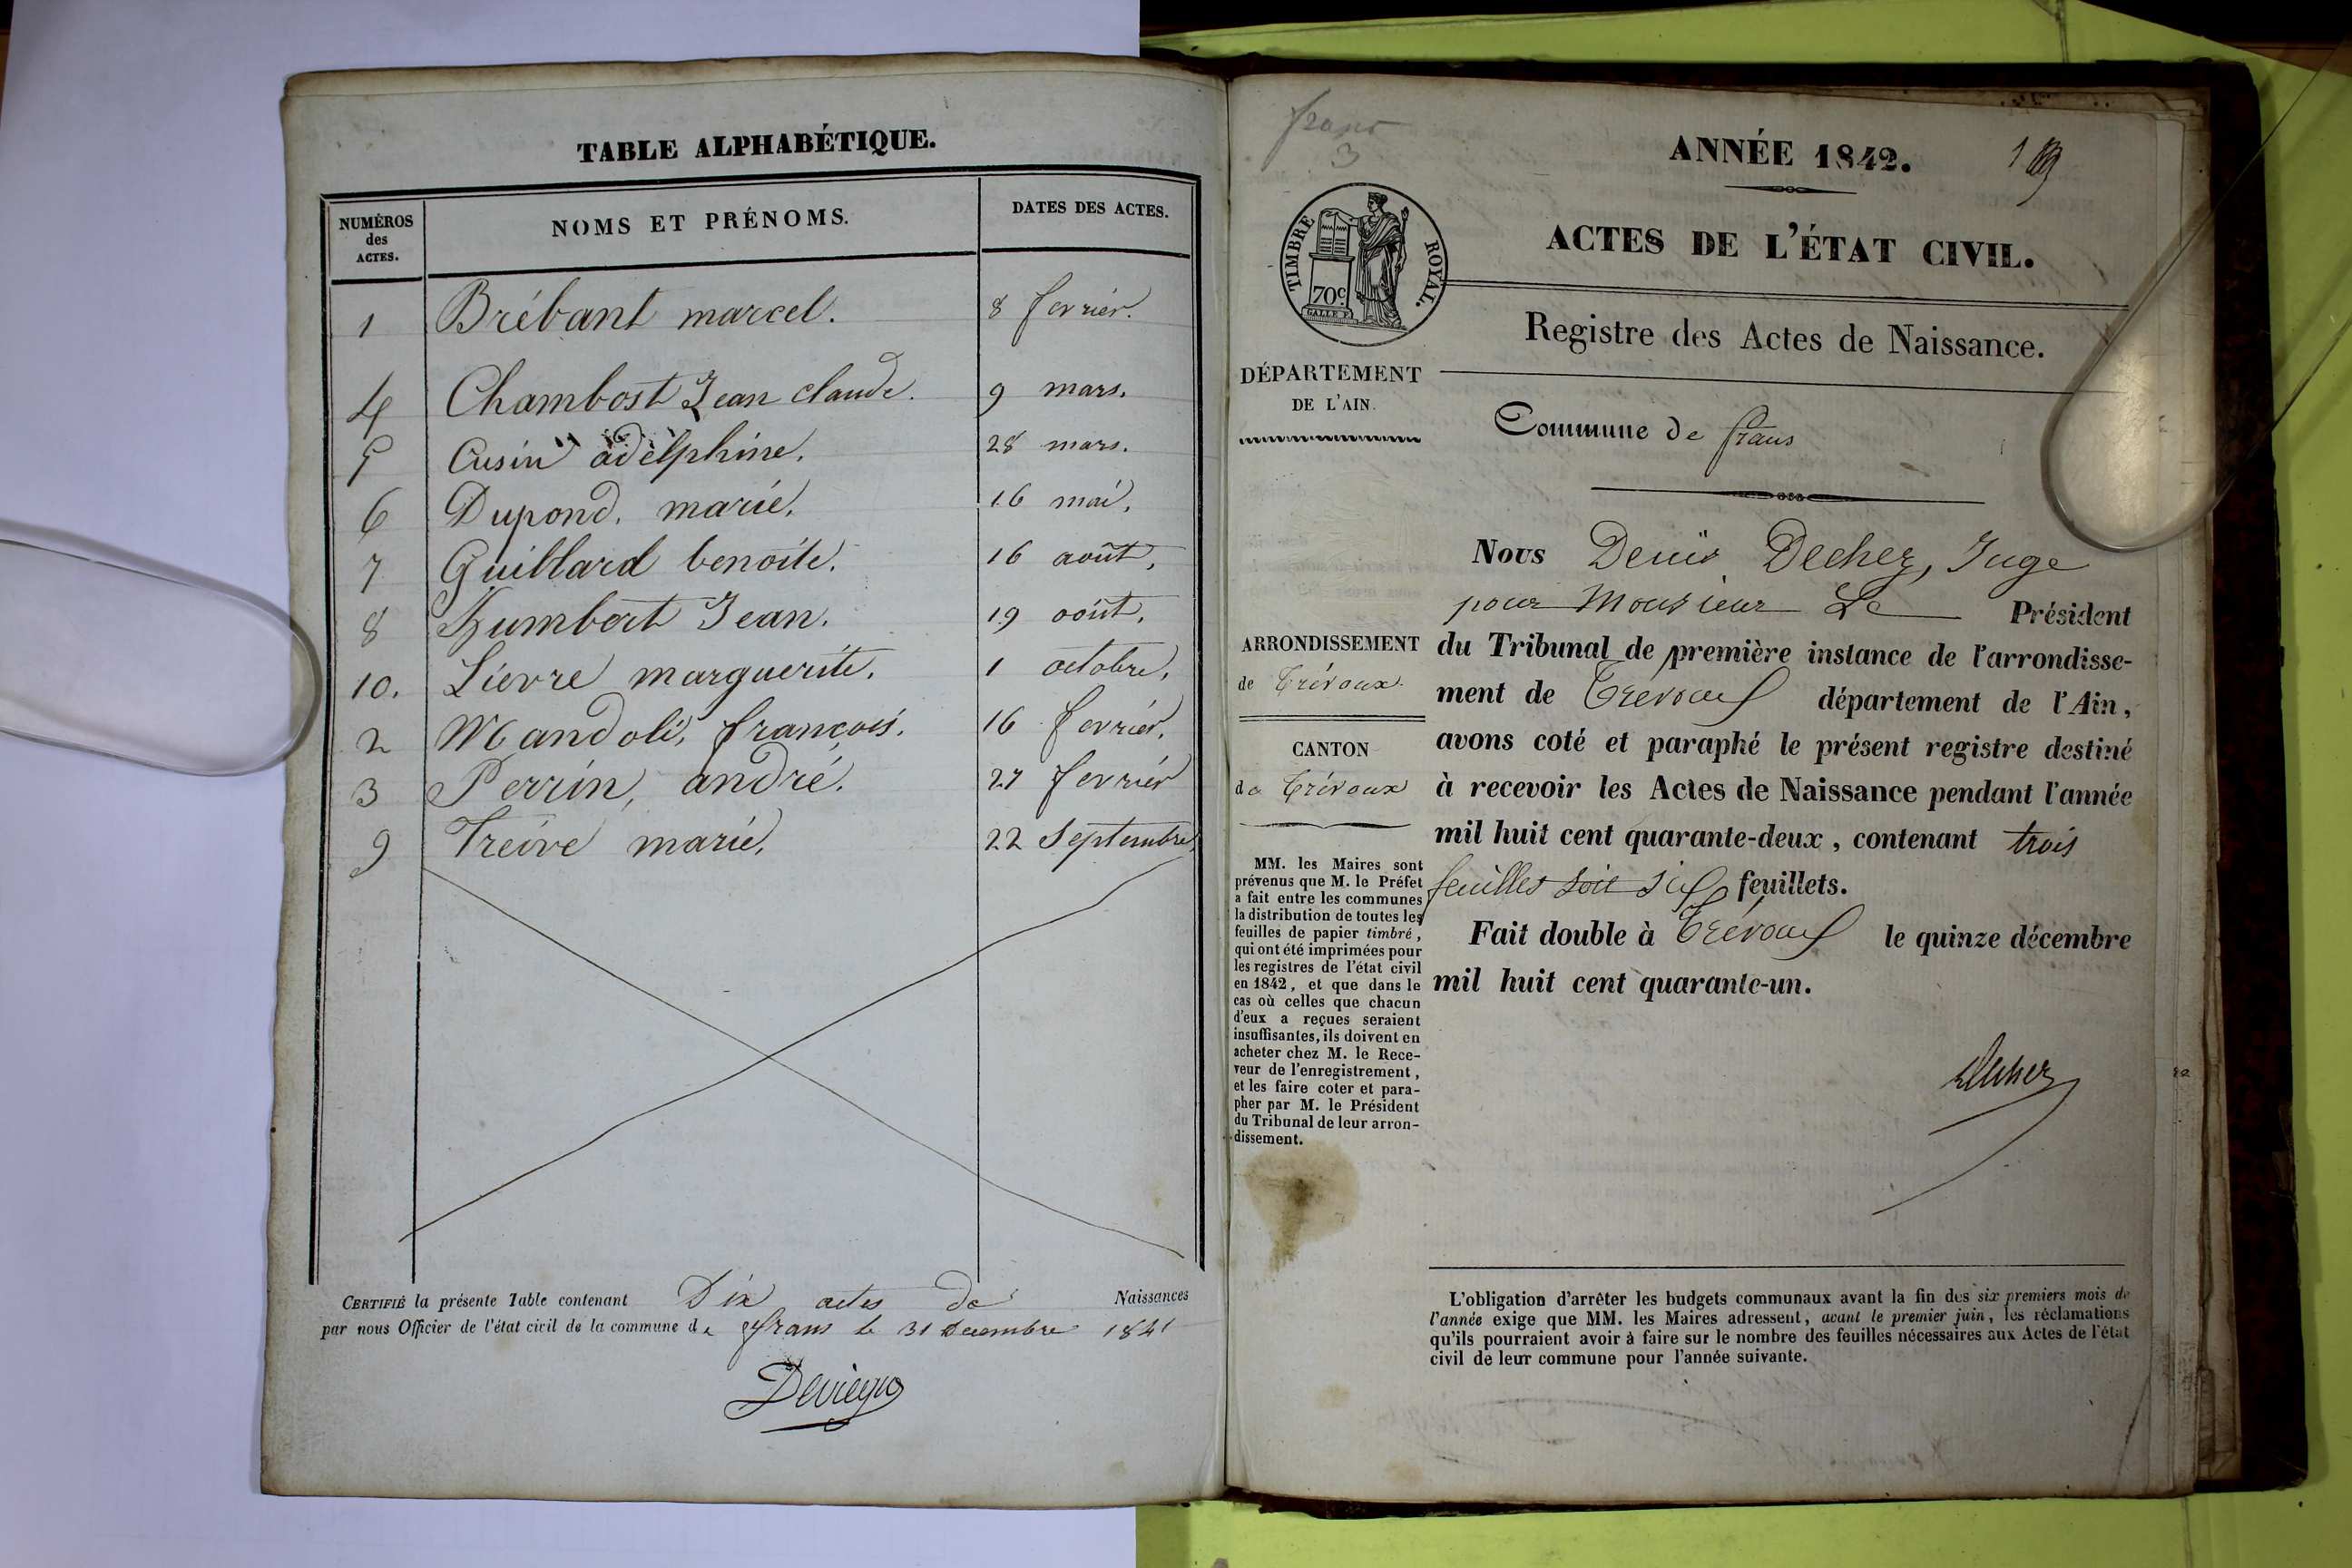 TABLE ALPHABÉTIQUE.
NUMÉROS des ACTES. NOMS ET PRÉNOMS. DATES DES ACTES.
1 Brébant marcel. 8 fevrier.
4 Chambost Jean claude. 9 mars.
5 Cusin adelphine. 28 mars.
6 Dupond, marie. 16 mai.
7 Guillard benoite. 16 août.
8 Humbert Jean. 19 août.
10. Lievre marguerite. 1 octobre.
2 Mandoli, françois. 16 fevrier.
3 Perrin, andré. 27 fevrier
9 Treive marie. 22 Septembre
CERTIFIÉ la présente Table contenant Dix actes de Naissances
par nous Officier de l'état civil de la commune de frans le 31 Decembre 1841
frans
3
ANNÉE 1842.
1
ACTES DE L'ÉTAT CIVIL.
TIMBRE ROYAL.
70c
Registre des Actes de Naissance.
DÉPARTEMENT
DE L'AIN.
Commune de frans
Nous Denis Dechez, Juge
pour Monsieur Le Président
ARRONDISSEMENT
de Trévoux
CANTON
de Trévoux
du Tribunal de première instance de l'arrondisse-
ment de Trevoux département de l'Ain,
avons coté et paraphé le présent registre destiné
à recevoir les Actes de Naissance pendant l'année
mil huit cent quarante-deux, contenant trois
feuilles soit six feuillets.
Fait double à Trévoux le quinze décembre
mil huit cent quarante-un.
Dechez
MM. les Maires sont
prévenus que M. le Préfet
a fait entre les communes
la distribution de toutes les
feuilles de papier timbré,
qui ont été imprimées pour
les registres de l'état civil
en 1842, et que dans le
cas où celles que chacun
d'eux a reçues seraient
insuffisantes, ils doivent en
acheter chez M. le Rece-
veur de l'enregistrement,
et les faire coter et para-
pher par M. le Président
du Tribunal de leur arron-
dissement.
L'obligation d'arrêter les budgets communaux avant la fin des six premiers mois de
l'année exige que MM. les Maires adressent, avant le premier juin, les réclamations
qu'ils pourraient avoir à faire sur le nombre des feuilles nécessaires aux Actes de l'état
civil de leur commune pour l'année suivante.